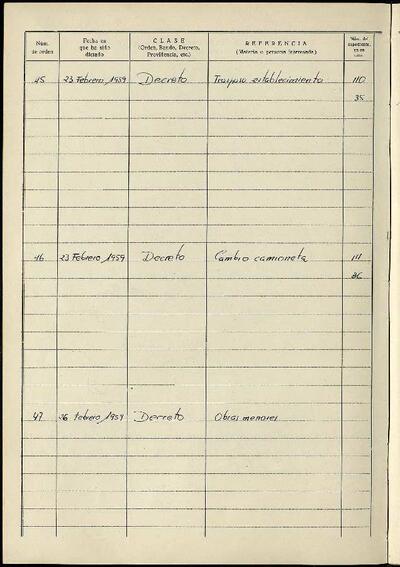 Núm. de orden
Fecha en que ha sido dictado
CLASE
(Orden, Bando, Decreto, Providencia, etc.)
REFERENCIA
(Materia o persona interesada)
Núm. del expediente,
45 23 Febrero, 1959 Decreto Traspaso establecimiento 110
35
46 23 Febrero, 1959 Decreto Cambio camioneta 111
36
47 26 febrero, 1959 Decreto Obras menores